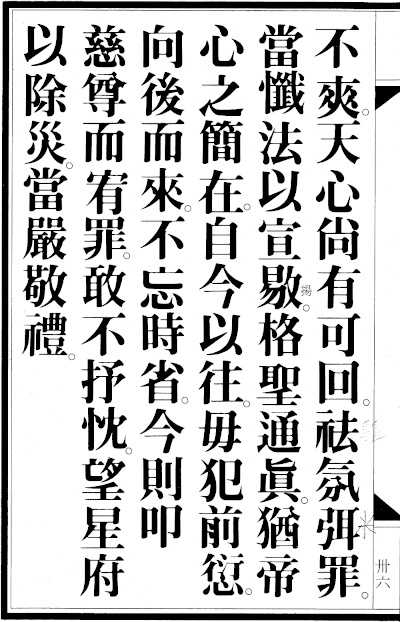 不爽。天心尙有可回。祛氛弭罪。
當懺法以宣敭。格聖通眞。猶帝
心之簡在。自今以往。毋犯前愆。
向後而來。不忘時省。今則叩
慈尊而宥罪。敢不抒忱。望星府
以除災。當嚴敬禮。
揚
卅六